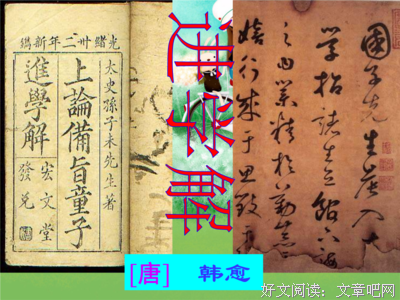 光緒卅二年新鐫
太史孫子未先生著
上論備旨童子
進學解
宏文堂
發兌
进学解
[唐] 韩愈
國子先生晨入大
學招諸生立館下誨
之曰業精於勤荒
嬉行成于思毀于
好文阅读：文章吧网